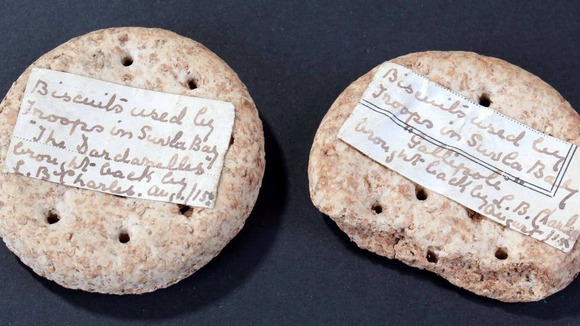 Biscuits used by
Troops in Suvla Bay
"The Dardanelles
brought back by
L. B. Charles. Aug/15
Biscuits used by
Troops in Suvla Bay
Gallipoli
brought back by L. B.
August/15